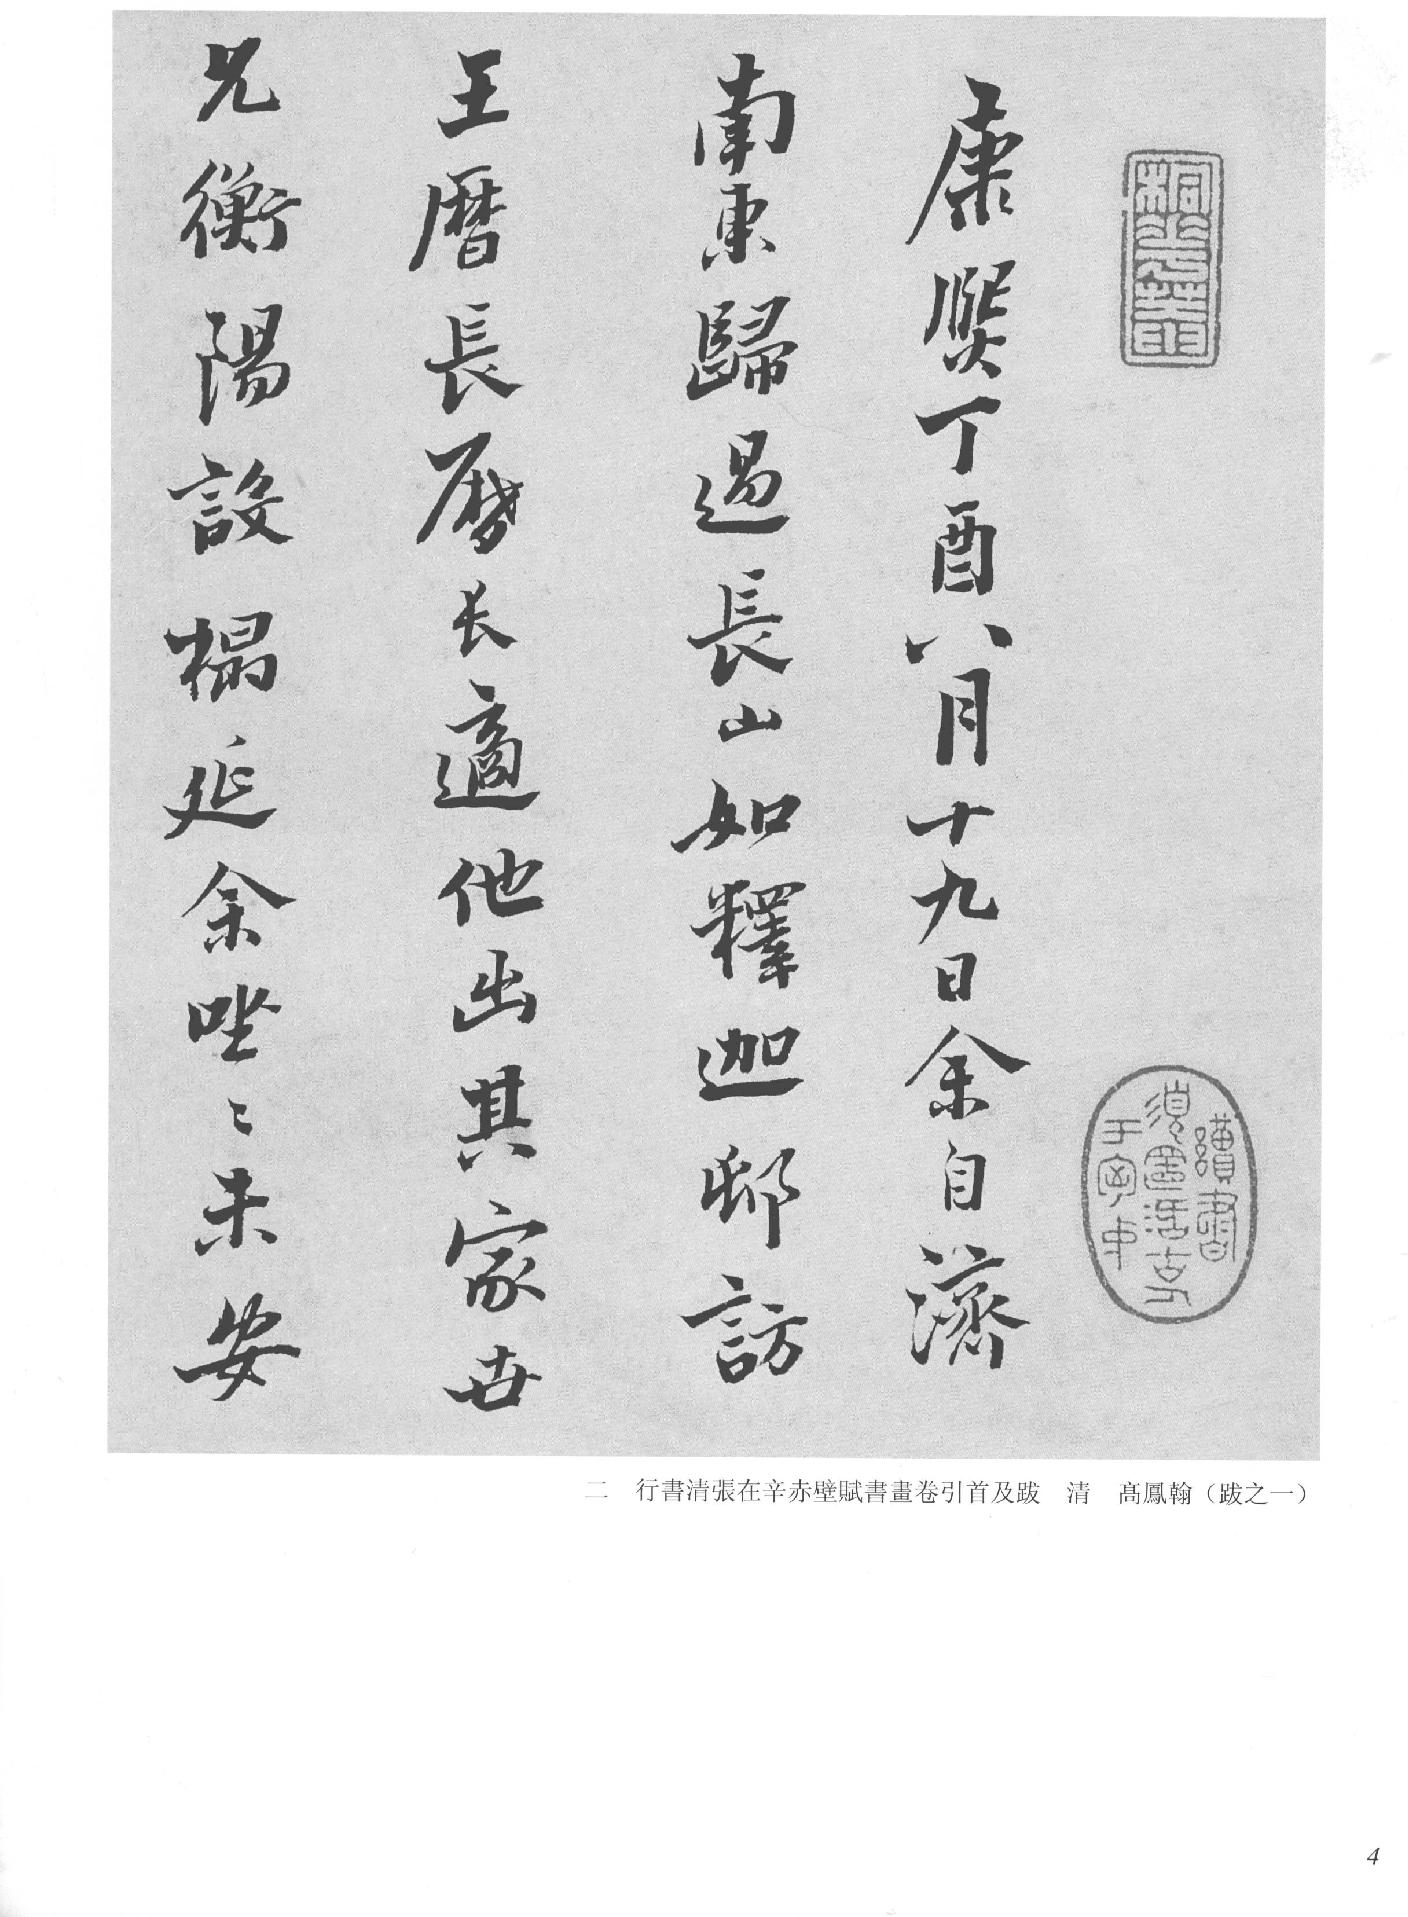 康熙丁酉八月十九日余自濟
南東歸過長山如釋迦邸訪
王曆長曆长適他出其家世
兄衡陽設榻延余坐〻未安
二　行書清張在辛赤壁賦書畫卷引首及跋　清　高鳳翰（跋之一）
4